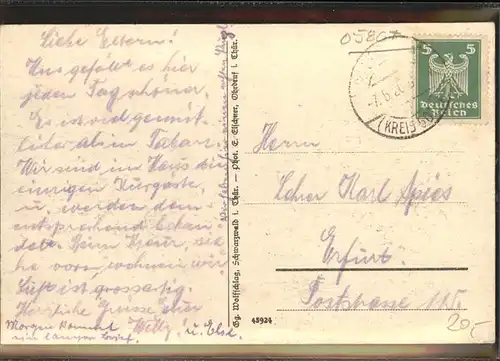 Liebe Eltern!
Uns gefällt es hier
jeden Tag schöner.
Es ist viel gemüt-
licher als in Tabarz.
Wir sind im Haus die
einzigen Kurgäste,
u. werden dem-
entsprechend behan-
delt. Beim Kreuz, sie-
he vorn, wohnen wir.
Luft ist grossartig.
Herzliche Grüsse Euer
Willy u. Elsa.
Morgen kommt
ein langer Brief.
Gg. Wolfschlag, Schwarzwald i. Thür. - Phot. E. Elschner, Ohrdruf i. Thür.
45924
05807
5 5
Deutsches
Reich
(KREIS GO
Herrn
Lehrer Karl Spies
Erfurt.
Poststrasse 115.
20,-